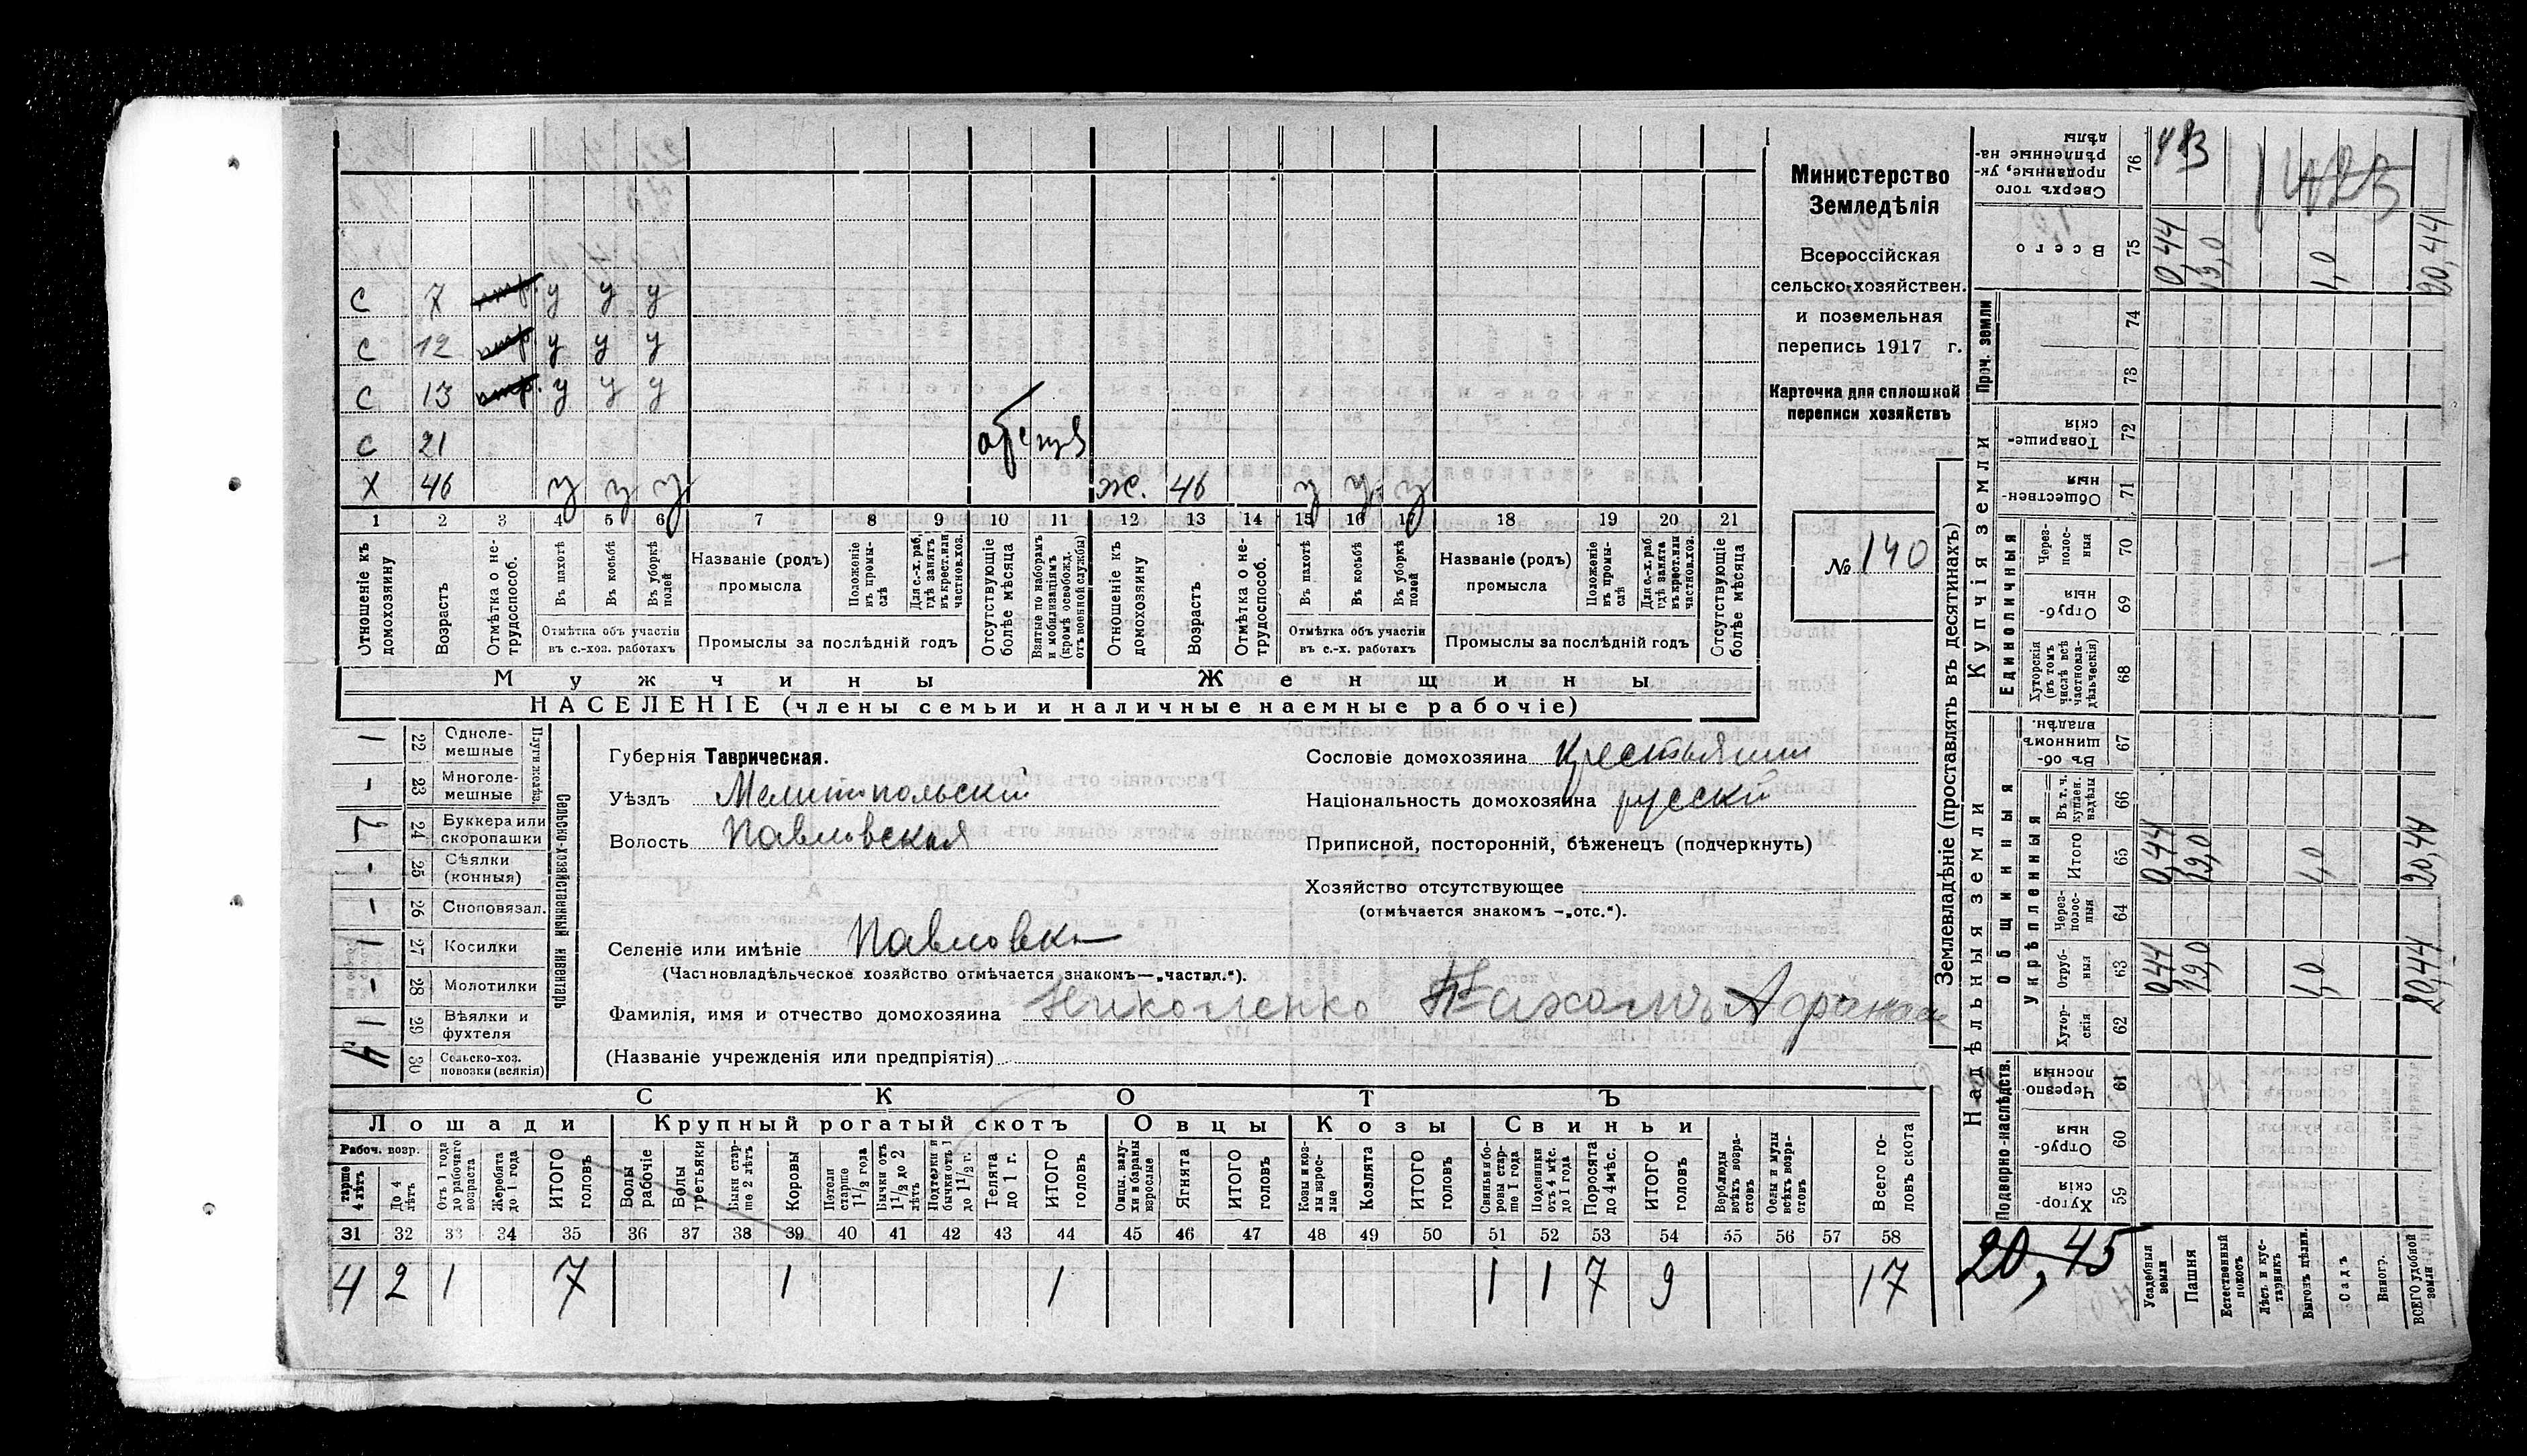 Министерство
Земледѣлія
Всероссійская
сельско-хозяйствен.
и поземельная
перепись 1917 г.
Карточка для сплошной
переписи хозяйствъ
№ 140
с 7 у у у
с 12 у у у
с 13 у у у
с 21
х 46 у у у ж. 46 у у у
1 2 3 4 5 6 7 8 9 10 11 12 13 14 15 16 17 18 19 20 21
Отношеніе къ домохозяину
Возрастъ
Отмѣтка о нетрудоспособ.
Въ пахотѣ
Въ косьбѣ
Въ уборкѣ полей
Отмѣтка объ участіи
въ с.-хоз. работахъ
Названіе (родъ)
промысла
Положеніе въ промыслѣ
Для с.-х. раб. гдѣ занятъ въ крест. или частнов. хоз.
Промыслы за послѣдній годъ
Отсутствующіе болѣе мѣсяца
Взятые по наборамъ и мобилизаціямъ (кромѣ освобожд. отъ военной службы)
Отношеніе къ домохозяину
Возрастъ
Отмѣтка о нетрудоспособ.
Въ пахотѣ
Въ косьбѣ
Въ уборкѣ полей
Отмѣтка объ участіи
въ с.-х. работахъ
Названіе (родъ)
промысла
Положеніе въ промыслѣ
Для с.-х. раб. гдѣ занята въ крест. или частнов. хоз.
Промыслы за послѣдній годъ
Отсутствующіе болѣе мѣсяца
Мужчины Женщины
НАСЕЛЕНІЕ (члены семьи и наличные наемные рабочіе)
Сельско-хозяйственный инвентарь
1 22 Однолемешные
- 23 Многолемешные
24 Буккера или скоропашки
- 25 Сѣялки (конныя)
- 26 Сноповязал.
1 27 Косилки
- 28 Молотилки
1 29 Вѣялки и фухтеля
4 30 Сельско-хоз. повозки (всякія)
Губернія Таврическая.
Уѣздъ Мелитопольскій
Волость Павловская
Селеніе или имѣніе Павловка
(Частновладѣльческое хозяйство отмѣчается знакомъ—„частвл.“).
Фамилія, имя и отчество домохозяина Николенко Пахомъ Афанас
(Названіе учрежденія или предпріятія)
Сословіе домохозяина крестьянин
Національность домохозяина русскій
Приписной, посторонній, бѣженецъ (подчеркнуть)
Хозяйство отсутствующее
(отмѣчается знакомъ —„отс.“).
СКОТЪ
Лошади Крупный рогатый скотъ Овцы Козы Свиньи
Рабоч. возр.
старше 4 лѣтъ
До 4 лѣтъ
Отъ 1 года до рабочаго возраста
Жеребята до 1 года
ИТОГО головъ
Волы рабочіе
Волы третьяки
Быки старше 2 лѣтъ
Коровы
Нетели старше 1½ года
Бычки отъ 1½ до 2 лѣтъ
Подтелки и бычки отъ 1 до 1½ г.
Телята до 1 г.
ИТОГО головъ
Овцы, валухи и бараны взрослые
Ягнята
ИТОГО головъ
Козы и козлы взрослые
Козлята
ИТОГО головъ
Свиньи и боровы старше 1 года
Подсвинки отъ 4 мѣс. до 1 года
Поросята до 4 мѣс.
ИТОГО головъ
Верблюды всѣхъ возрастовъ
Ослы и мулы всѣхъ возрастовъ
Всего головъ скота
31 32 33 34 35 36 37 38 39 40 41 42 43 44 45 46 47 48 49 50 51 52 53 54 55 56 57 58
4 2 1 7 1 1 1 1 7 9 17
Землевладѣніе (проставлять въ десятинахъ)
Сверхъ того проданные, укрѣпленные надѣлы 76
Всего 75 0,44 19,0 1,0 20,44
Проч. земли 74 73
Купчія земли
Товарищескія 72
Общественныя 71
Единоличныя
Черезполосныя 70
Отрубныя 69
Хуторскія (въ томъ числѣ всѣ частновладѣльческія) 68
Надѣльныя земли
Общинныя
Въ общинномъ владѣн. 67
Укрѣпленныя
Въ т. ч. куплен. надѣлы 66
Итого 65 0,44 19,0 1,0 20,44
Черезполосныя 64
Отрубныя 63 0,44 19,0 1,0 20,44
Хуторскія 62
Подворно-наслѣдств.
Черезполосныя 61
Отрубныя 60
Хуторскія 59
20,45
Усадебныя земли
Пашня
Естественный покосъ
Лѣсъ и кустарникъ
Выгонъ цѣлин.
Садъ
Виногр.
ВСЕГО удобной земли